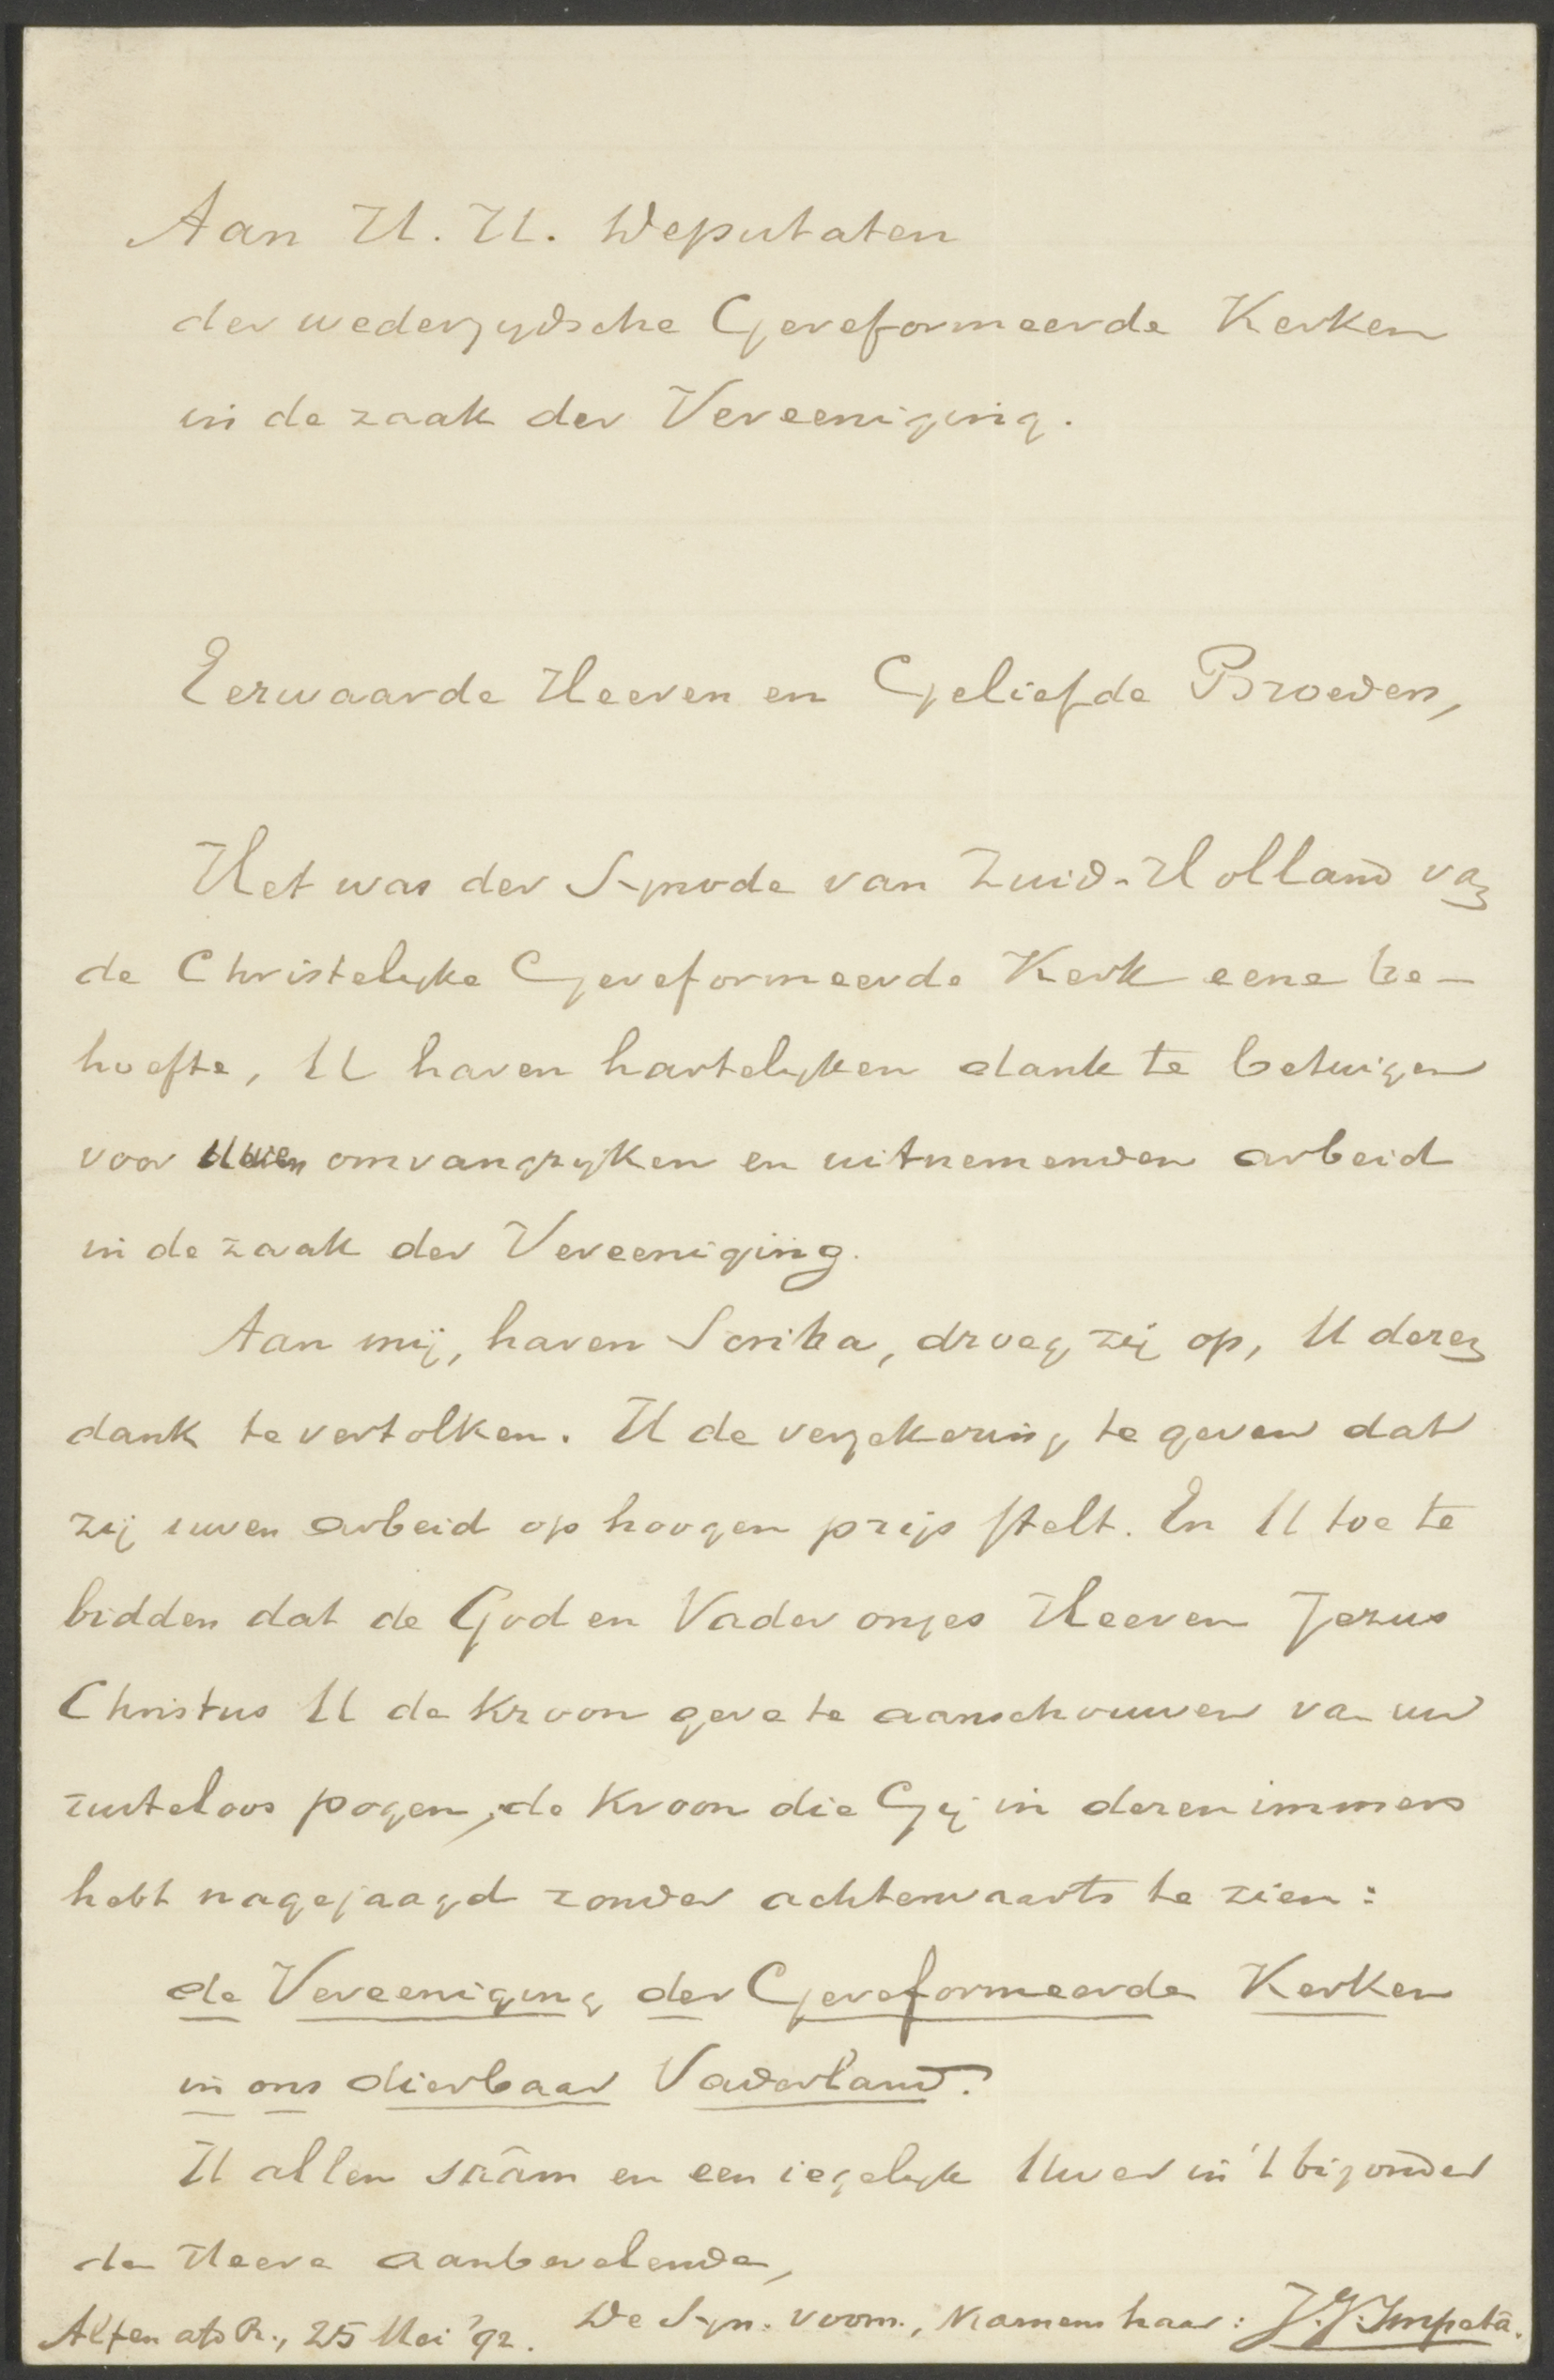 Aan H.H. Deputaten
der wederzydsche Gereformeerde Kerken
in de zaak der Vereeniging.
Eerwaarde Heeren en Geliefde Broeders,
Het was der Synode van Zuid-Holland van
de Christelyke Gereformeerde Kerk eene be-
hoefte, U haren hartelyken dank te betuigen
voor Uwen omvangryken en uitnemenden arbeid
in de zaak der Vereeniging.
Aan mij, haren Scriba, droeg zij op, U dezen
dank te vertolken. U de verzekering te geven dat
zij uwen arbeid op hoogen prijs stelt. En U toe te
bidden dat de God en Vader onzes Heeren Jezus
Christus U de Kroon geve te aanschouwen van uw
rusteloos pogen, de Kroon die Gij in dezen immers
hebt nagejaagd zonder achterwaarts te zien:
de Vereeniging der Gereformeerde Kerken
in ons dierbaar Vaderland.
U allen sāām en een iegelyk Uwer in 't bizonder
den Heere aanbevelende,
Alfen a/d R., 25 Mei '92. De Syn. voorn., Namens haar: J.J. Impeta.